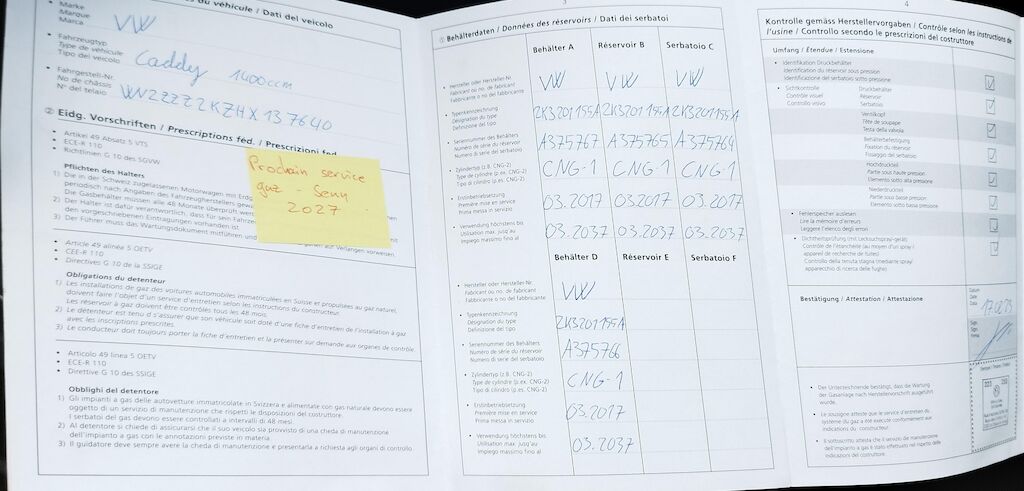 Marke
Marque
Marca
VW
Fahrzeugtyp
Type de véhicule
Tipo del veicolo
Caddy 1400ccm
Fahrgestell-Nr.
No de châssis
N° del telaio
② Eidg. Vorschriften / Prescriptions féd. / Prescrizioni fed.
Artikel 49 Absatz 5 VTS
ECE-R 110
Richtlinien G 10 des SGVW
Pflichten des Halters
1) Die in der Schweiz zugelassenen Motorwagen mit
periodisch nach Angaben des Fahrzeugherstellers
Die Gasbehälter müssen alle 48 Monate überprüft
2) Der Halter ist dafür verantwortlich, dass für sein
den vorgeschriebenen Eintragungen vorhanden ist.
3) Der Führer muss das Wartungsdokument mitführen und
auf Verlangen vorweisen.
Prochain service
gaz - Senn
2027
Article 49 alinéa 5 OETV
CEE-R 110
Directives G 10 de la SSIGE
Obligations du détenteur
1) Les installations de gaz des voitures automobiles immatriculées en Suisse et propulsées au gaz naturel,
doivent faire l'objet d'un service d'entretien selon les instructions du constructeur.
Les réservoirs à gaz doivent être contrôlés tous les 48 mois.
2) Le détenteur est tenu de s'assurer que son véhicule soit doté d'une fiche d'entretien de l'installation à gaz
avec les inscriptions prescrites.
3) Le conducteur doit toujours porter la fiche d'entretien et la présenter sur demande aux organes de contrôle.
Articolo 49 linea 5 OETV
ECE-R 110
Direttive G 10 del SSIGE
Obblighi del detentore
1) Gli impianti a gas delle autovetture immatricolate in Svizzera e alimentate con gas naturale devono essere
oggetto di un servizio di manutenzione che rispetti le disposizioni del costruttore.
I serbatoi del gas devono essere controllati a intervalli di 48 mesi.
2) Al detentore si chiede di assicurarsi che il suo veicolo sia provvisto di una scheda di manutenzione
dell'impianto a gas con le annotazioni previste in materia.
3) Il guidatore deve sempre avere la scheda di manutenzione e presentarla a richiesta agli organi di controllo.
3
① Behälterdaten / Données des réservoirs / Dati dei serbatoi
Behälter A Réservoir B Serbatoio C
Hersteller oder Hersteller-Nr.
Fabricant ou no. de fabricant
Fabbricante o no. del fabbricante
VW VW VW
Typenkennzeichnung
Désignation du type
Definizione del tipo
2K3201155A 2K3201155A 2K3201155A
Seriennummer des Behälters
Numéro de série du réservoir
Numero di serie del serbatoio
A375767 A375765 A375764
Zylindertyp (z.B. CNG-2)
Type de cylindre (p.ex. CNG-2)
Tipo di cilindro (p.es. CNG-2)
CNG-1 CNG-1 CNG-1
Erstinbetriebsetzung
Première mise en service
Prima messa in servizio
03.2017 03.2017 03.2017
Verwendung höchstens bis
Utilisation max. jusqu'au
Impiego massimo fino al
03.2037 03.2037 03.2037
Behälter D Réservoir E Serbatoio F
Hersteller oder Hersteller-Nr.
Fabricant ou no. de fabricant
Fabbricante o no. del fabbricante
VW
Typenkennzeichnung
Désignation du type
Definizione del tipo
2K3201155A
Seriennummer des Behälters
Numéro de série du réservoir
Numero di serie del serbatoio
A375766
Zylindertyp (z.B. CNG-2)
Type de cylindre (p.ex. CNG-2)
Tipo di cilindro (p.es. CNG-2)
CNG-1
Erstinbetriebsetzung
Première mise en service
Prima messa in servizio
03.2017
Verwendung höchstens bis
Utilisation max. jusqu'au
Impiego massimo fino al
03.2037
4
Kontrolle gemäss Herstellervorgaben / Contrôle selon les instructions de
l'usine / Controllo secondo le prescrizioni del costruttore
Umfang / Etendue / Estensione
Identifikation Druckbehälter
Identification du réservoir sous pression
Identificazione del serbatoio sotto pressione
Sichtkontrolle Druckbehälter
Contrôle visuel Réservoir
Controllo visivo Serbatoio
Ventilkopf
Tête de soupape
Testa della valvola
Behälterbefestigung
Fixation du réservoir
Fissaggio del serbatoio
Hochdruckteil
Partie sous haute pression
Elemento sotto alta pressione
Niederdruckteil
Partie sous basse pression
Elemento sotto bassa pressione
Fehlerspeicher auslesen
Lire la mémoire d'erreurs
Leggere l'elenco degli errori
Dichtheitsprüfung (mit Lecksuchspray/-gerät)
Contrôle de l'étanchéité (au moyen d'un spray /
appareil de recherche de fuites)
Controllo della tenuta stagna (mediante spray/
apparecchio di ricerca delle fughe)
Bestätigung / Attestation / Attestazione
Datum
Date
Data
Der Unterzeichnende bestätigt, dass die Wartung
der Gasanlage nach Herstellervorschrift ausgeführt
wurde.
Le soussigné atteste que le service d'entretien du
système du gaz a été exécuté conformément aux
indications du constructeur.
Il sottoscritto attesta che il servizio di manutenzione
dell'impianto a gas è stato effettuato nel rispetto delle
indicazioni del costruttore.